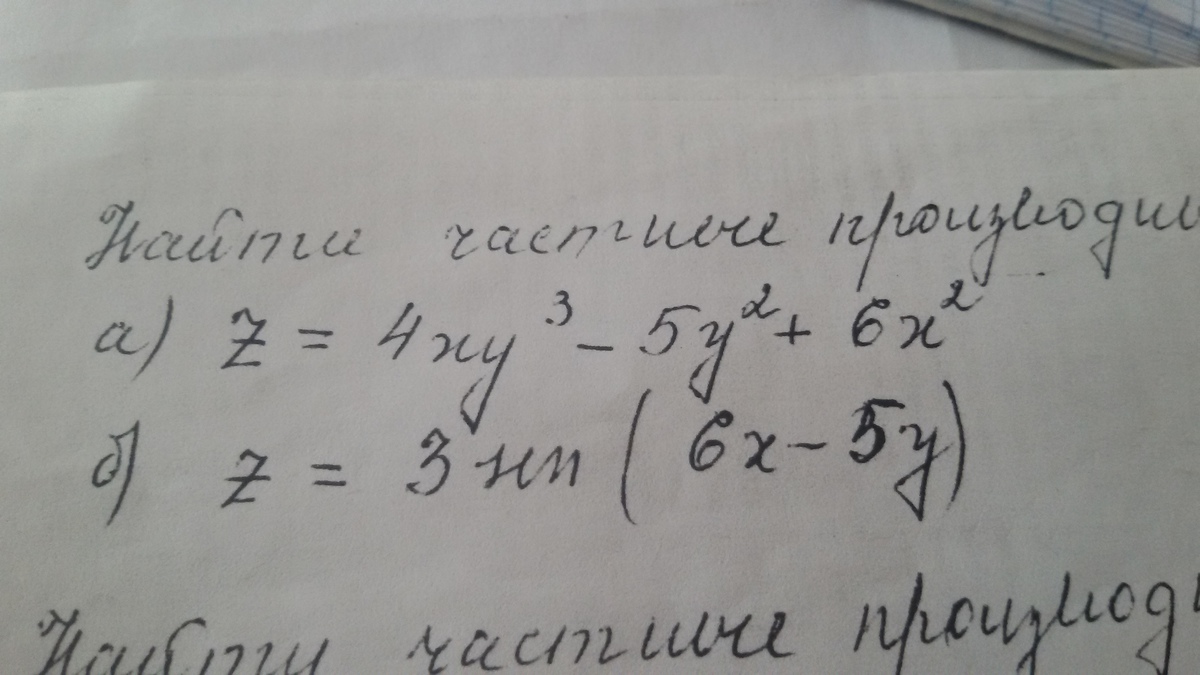 Найти частные производны
а) z = 4xy³ - 5y² + 6x²
б) z = 3 sin (6x - 5y)
Найти частные производ